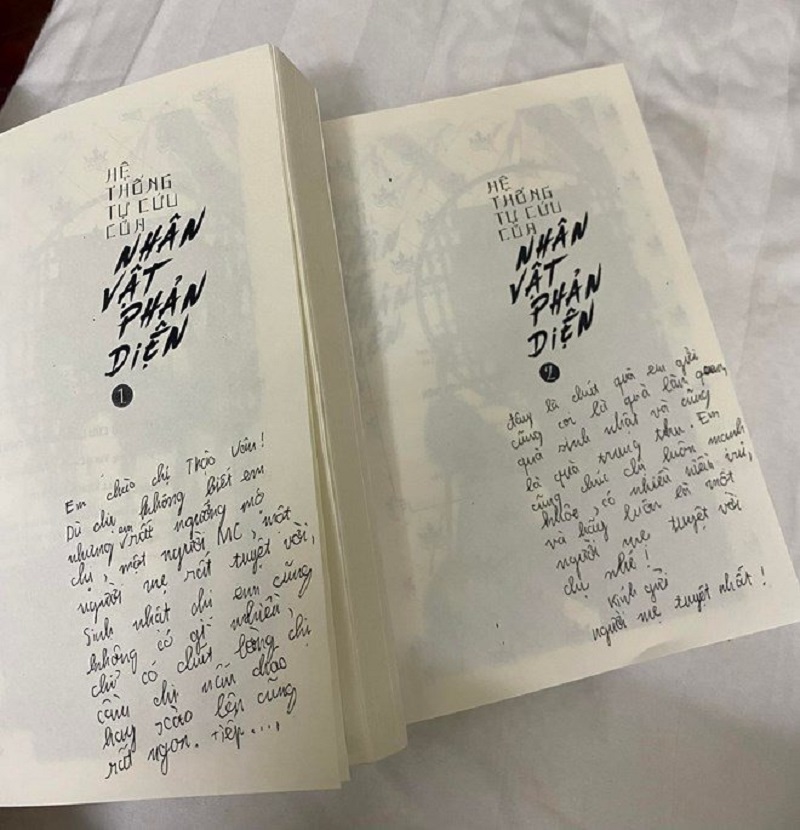 HỆ
THỐNG
TỰ CỨU
CỦA
NHÂN
VẬT
PHẢN
DIỆN
1
Em chào chị Thảo Vân!
Dù chị không biết em
nhưng em rất ngưỡng mộ
chị, một người MC, một
người mẹ rất tuyệt vời,
Sinh nhật chị em cũng
không có gì nhiều,
chỉ có chút lòng chị
cầm chị nấu cháo
hay xào lên cũng
rất ngon. Tiếp....,
HỆ
THỐNG
TỰ CỨU
CỦA
NHÂN
VẬT
PHẢN
DIỆN
2
đây là chút quà em gửi
cũng coi là quà làm quen,
quà sinh nhật và cũng
là quà trung thu. Em
cũng chúc chị luôn mạnh
khỏe, có nhiều niềm vui,
và hãy luôn là một
người mẹ tuyệt vời
chị nhé!
Kính gửi
người mẹ tuyệt nhất!